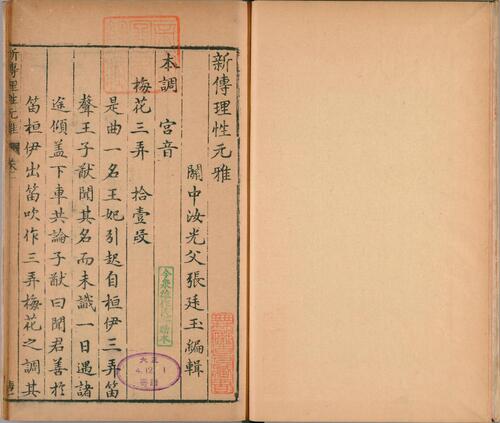 新傳理性元雅
關中汝光父張廷玉編輯
本調 宮音
梅花三弄 拾壹段
是曲一名王妃引起自桓伊三弄笛
聲王子猷聞其名而未識一日遇諸
途傾盖下車共論子猷曰聞君善於
笛桓伊出笛吹作三弄梅花之調其
新傳理性元雅
大正
4.12.1